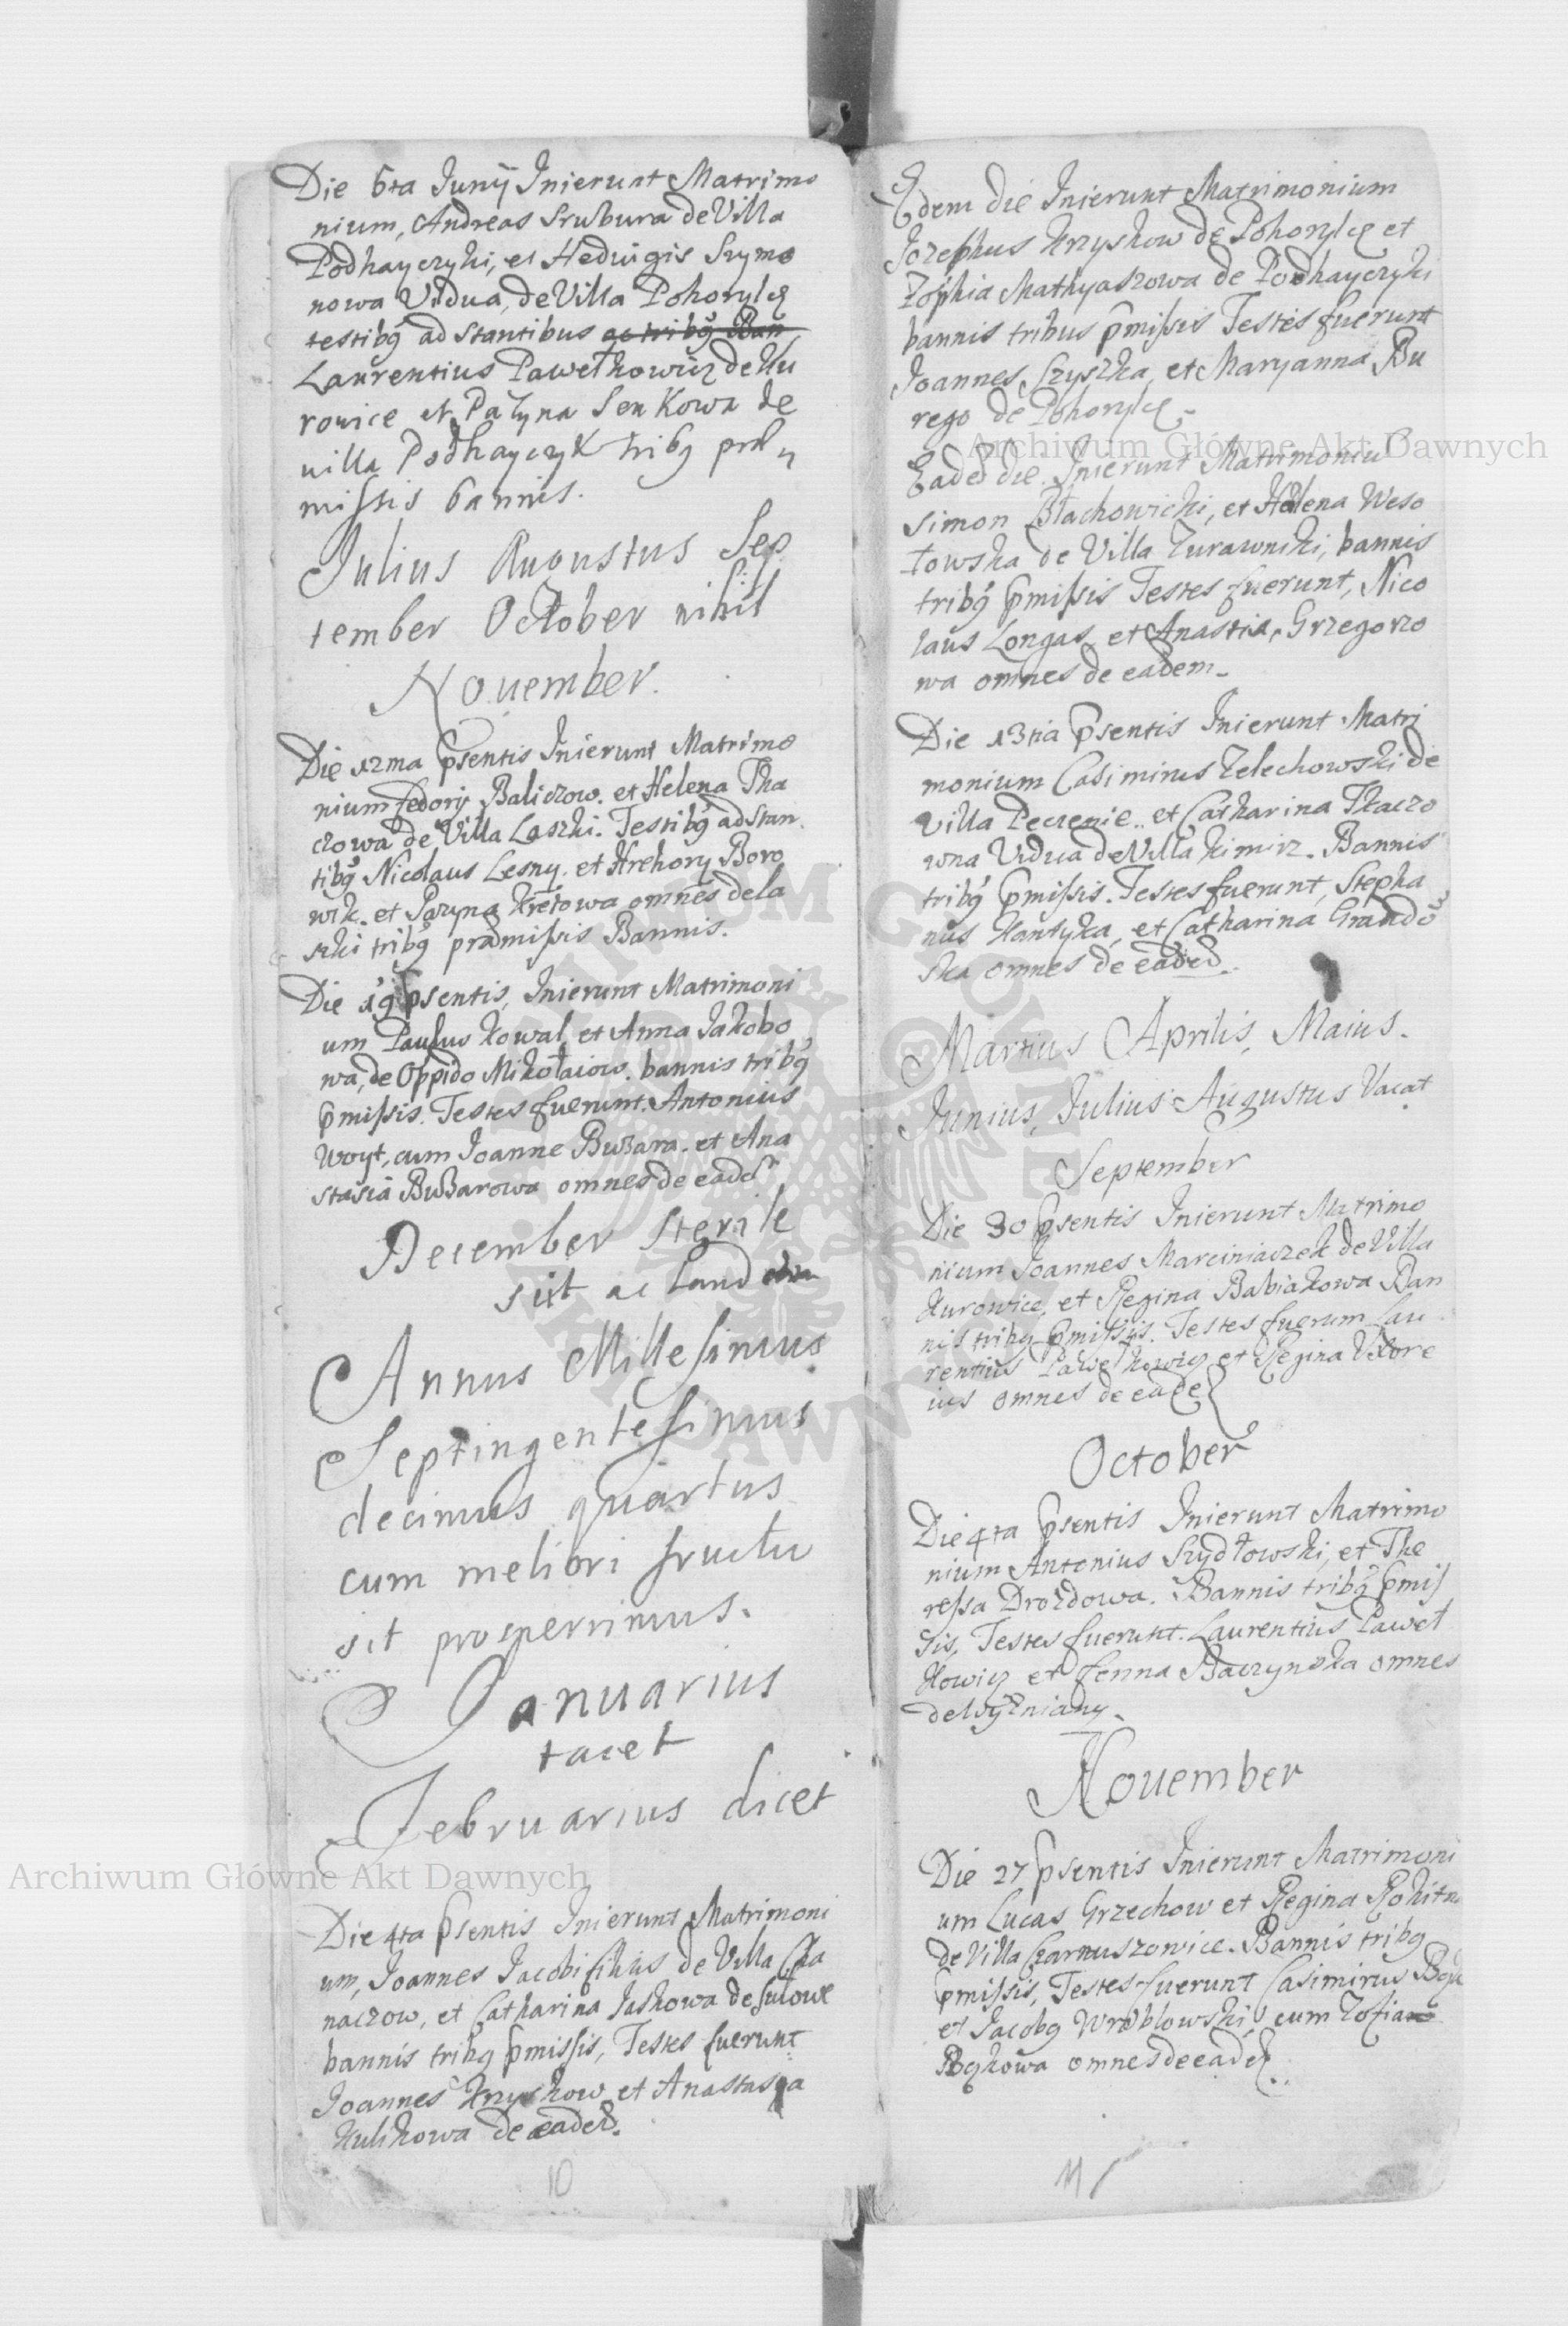 Die 6ta Junÿ Inierunt Matrimo
nium, Andreas Srubura de Villa
Podhayczyki, et Hedvigis Szymo
nowa Vidua, de Villa Pohorylce
testibg ad stantibus ac tribg Ban
Laurentius Pawełkowicz de Ku
rowice et Pazyna Senkowa de
villa Podhayczyk tribg præ
missis bannis.
Julius Augustus Sep
tember October nihil
November.
Die 12ma psentis Inierunt Matrimo
nium fedory Baliczow. et Helena Tka
czowa de Villa Laszki. Testibg adstan
tibg Nicolaus Lesny. et Hrehory Boro
wik. et Pazyna Kretowa omnes de la
szki tribg præmissis Bannis.
Die 19 psentis, Inierunt Matrimoni
um Paulus Kowal, et Anna Jakobo
wa, de Oppido Mikołaiow. bannis tribg
pmissis. Testes fuerunt. Antonius
Woyt, cum Joanne Buzara. et Ana
stasia Buzarowa omnes de eadē
December sterile
sit ac
Annus Millesimus
Septingentesimus
decimus quartus
cum meliori fructu
sit prosperrimus.
Januarius
tacet
Februarius dicet
Die 4ta psentis Inierunt Matrimoni
um, Joannes Jacobi filius de Villa Cha
naczow, et Catharina Jaskowa de
bannis tribg pmissis, Testes fuerunt
Joannes Krzyskow et Anastasya
Kulikowa de eadem.
10
Edem die Inierunt Matrimonium
Jozephus Krzyskow de Pohorylce et
Zophia Mathyaszowa de Podhayczyki
bannis tribus pmissis Testes fuerunt
Joannes Szyszka et Maryanna Bu
rego de Pohorylce
Eadē die Inierunt Matrimoniū
Simon Błachowicki, et Helena Weso
łowska de Villa Zurawniki, bannis
tribg pmissis Testes fuerunt, Nico
laus Longas et Anastia, Grzegorzo
wa omnes de eadem
Die 13tia psentis Inierunt Matri
monium Casimirus Zelechowski de
Villa Peczenie. et Catharina Tkaczo
wna Vidua de Villa Kimirz. Bannis
tribg pmissis. Testes fuerunt, Stepha
nus Kantyka, et Catharina Grandō
ska omnes de eadē.
Martius Aprilis, Maius.
Junius, Julius Augustus Vacat
September
Die 30 psentis Inierunt Matrimo
nium Joannes Marciniaczek de Villa
Kurowice, et Regina Babiakowa Ban
nis tribg pmissis. Testes fuerunt Lau
rentius Pawełkowicz et Regina Uxore
ius omnes de eadē
October
Die 4ta psentis Inierunt Matrimo
nium Antonius Szydłowski, et The
ressa Drozdowa. Bannis tribg pmis
sis, Testes fuerunt. Laurentius Paweł
kowicz et fenna Baczynska omnes
de Wyzniany.
November
Die 27 psentis Inierunt Matrimoni
um Lucas Grzechow et Regina Rokitn
de Villa Czarnuszowice. Bannis tribg
pmissis, Testes fuerunt Casimirus
et Jacobg Wroblowski, cum Zofia
Bgkowa omnes de eadē.
11
Archiwum Główne Akt Dawnych
Archiwum Główne Akt Dawnych
ARCHIWUM GŁÓWNE AKT DAWNYCH